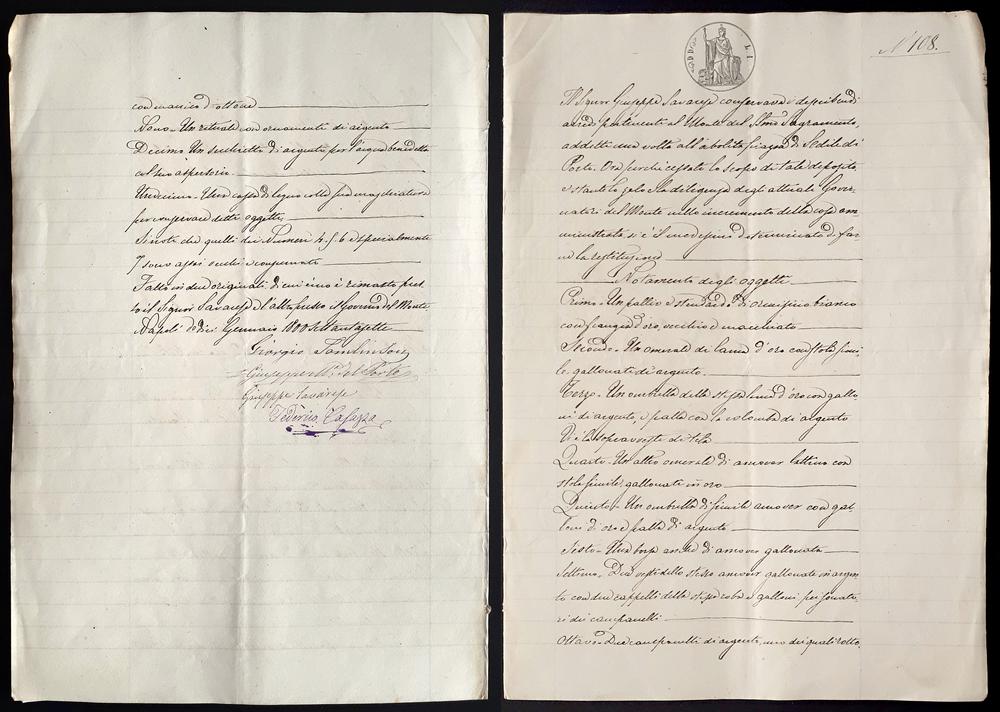 con manico d'ottone
Nono - Un rituale con ornamenti di argento
Decimo - Un secchietto di argento per l'acqua benedetta
col suo aspersorio.
Undecimo - Una cassa di legno colla sua
per conservare detti oggetti,
Si noti che quelli dei Numeri 4. 5. 6 e specialmente
7 sono assai vecchi e
Fatto in due originali di cui uno è rimasto presso
il Signor Savarese e l'altro presso il Governo del Monte
Napoli Gennaio 1800settantasette
Giorgio Tomlinson
Giuseppe del Porto
Giuseppe Savarese
Federico
N. 108.
Il Signor Giuseppe Savarese conservava i
arredi pertinenti al Monte del SSmo Sagramento,
addetti una volta all'abolita piazza di Sedile di
Porto. Ora perchè cessato lo scopo di tale deposito,
e stante lo zelo e la diligenza degli attuali Gover-
natori del Monte nello incremento della cosa am-
ministrata, si è il medesimo determinato di far-
ne la restituzione
Notamento degli oggetti
Primo - Un pallio o stendardo di bianco
con frangia d'oro, vecchio e macchiato
Secondo - Un omerale di lama d'oro con stola simi-
le gallonata di argento.
Terzo - Un ombrella della stessa lama d'oro con gallo-
ni di argento, e palla con la colomba di argento
Vi è la sopravveste di tela
Quarto - Un altro omerale di amover lattino con
stola simile, gallonata in oro
Quinto - Un ombrella di simile amover con gal-
loni di oro e palla di argento
Sesto - Una borsa anche di amover gallonata
Settimo - Due vesti dello stesso amover gallonate in argen-
to con due cappelli della stessa roba e galloni pei sonato-
ri dei campanelli
Ottavo - Due campanelli di argento, uno dei quali rotto,